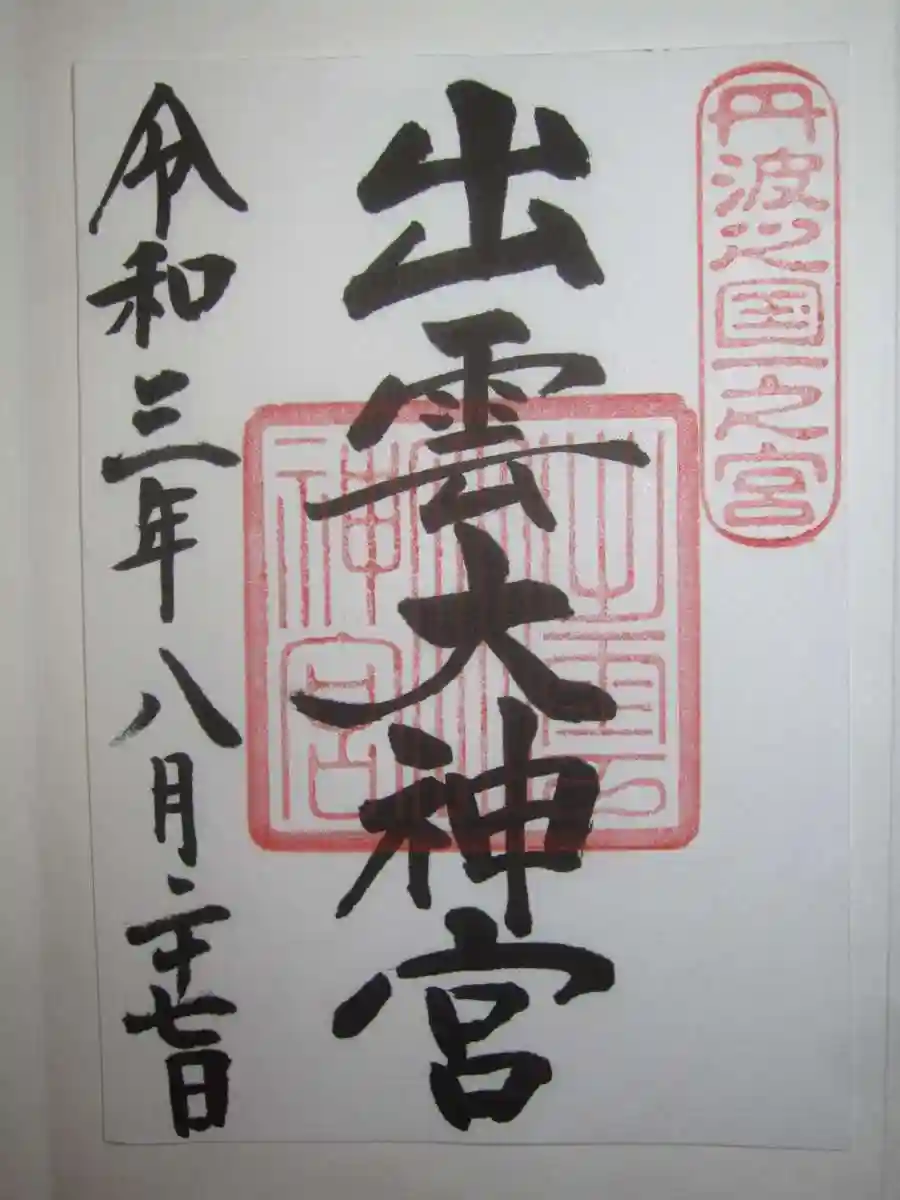 丹波之国一之宮
出雲大神宮
出雲大神宮
令和三年八月二十七日